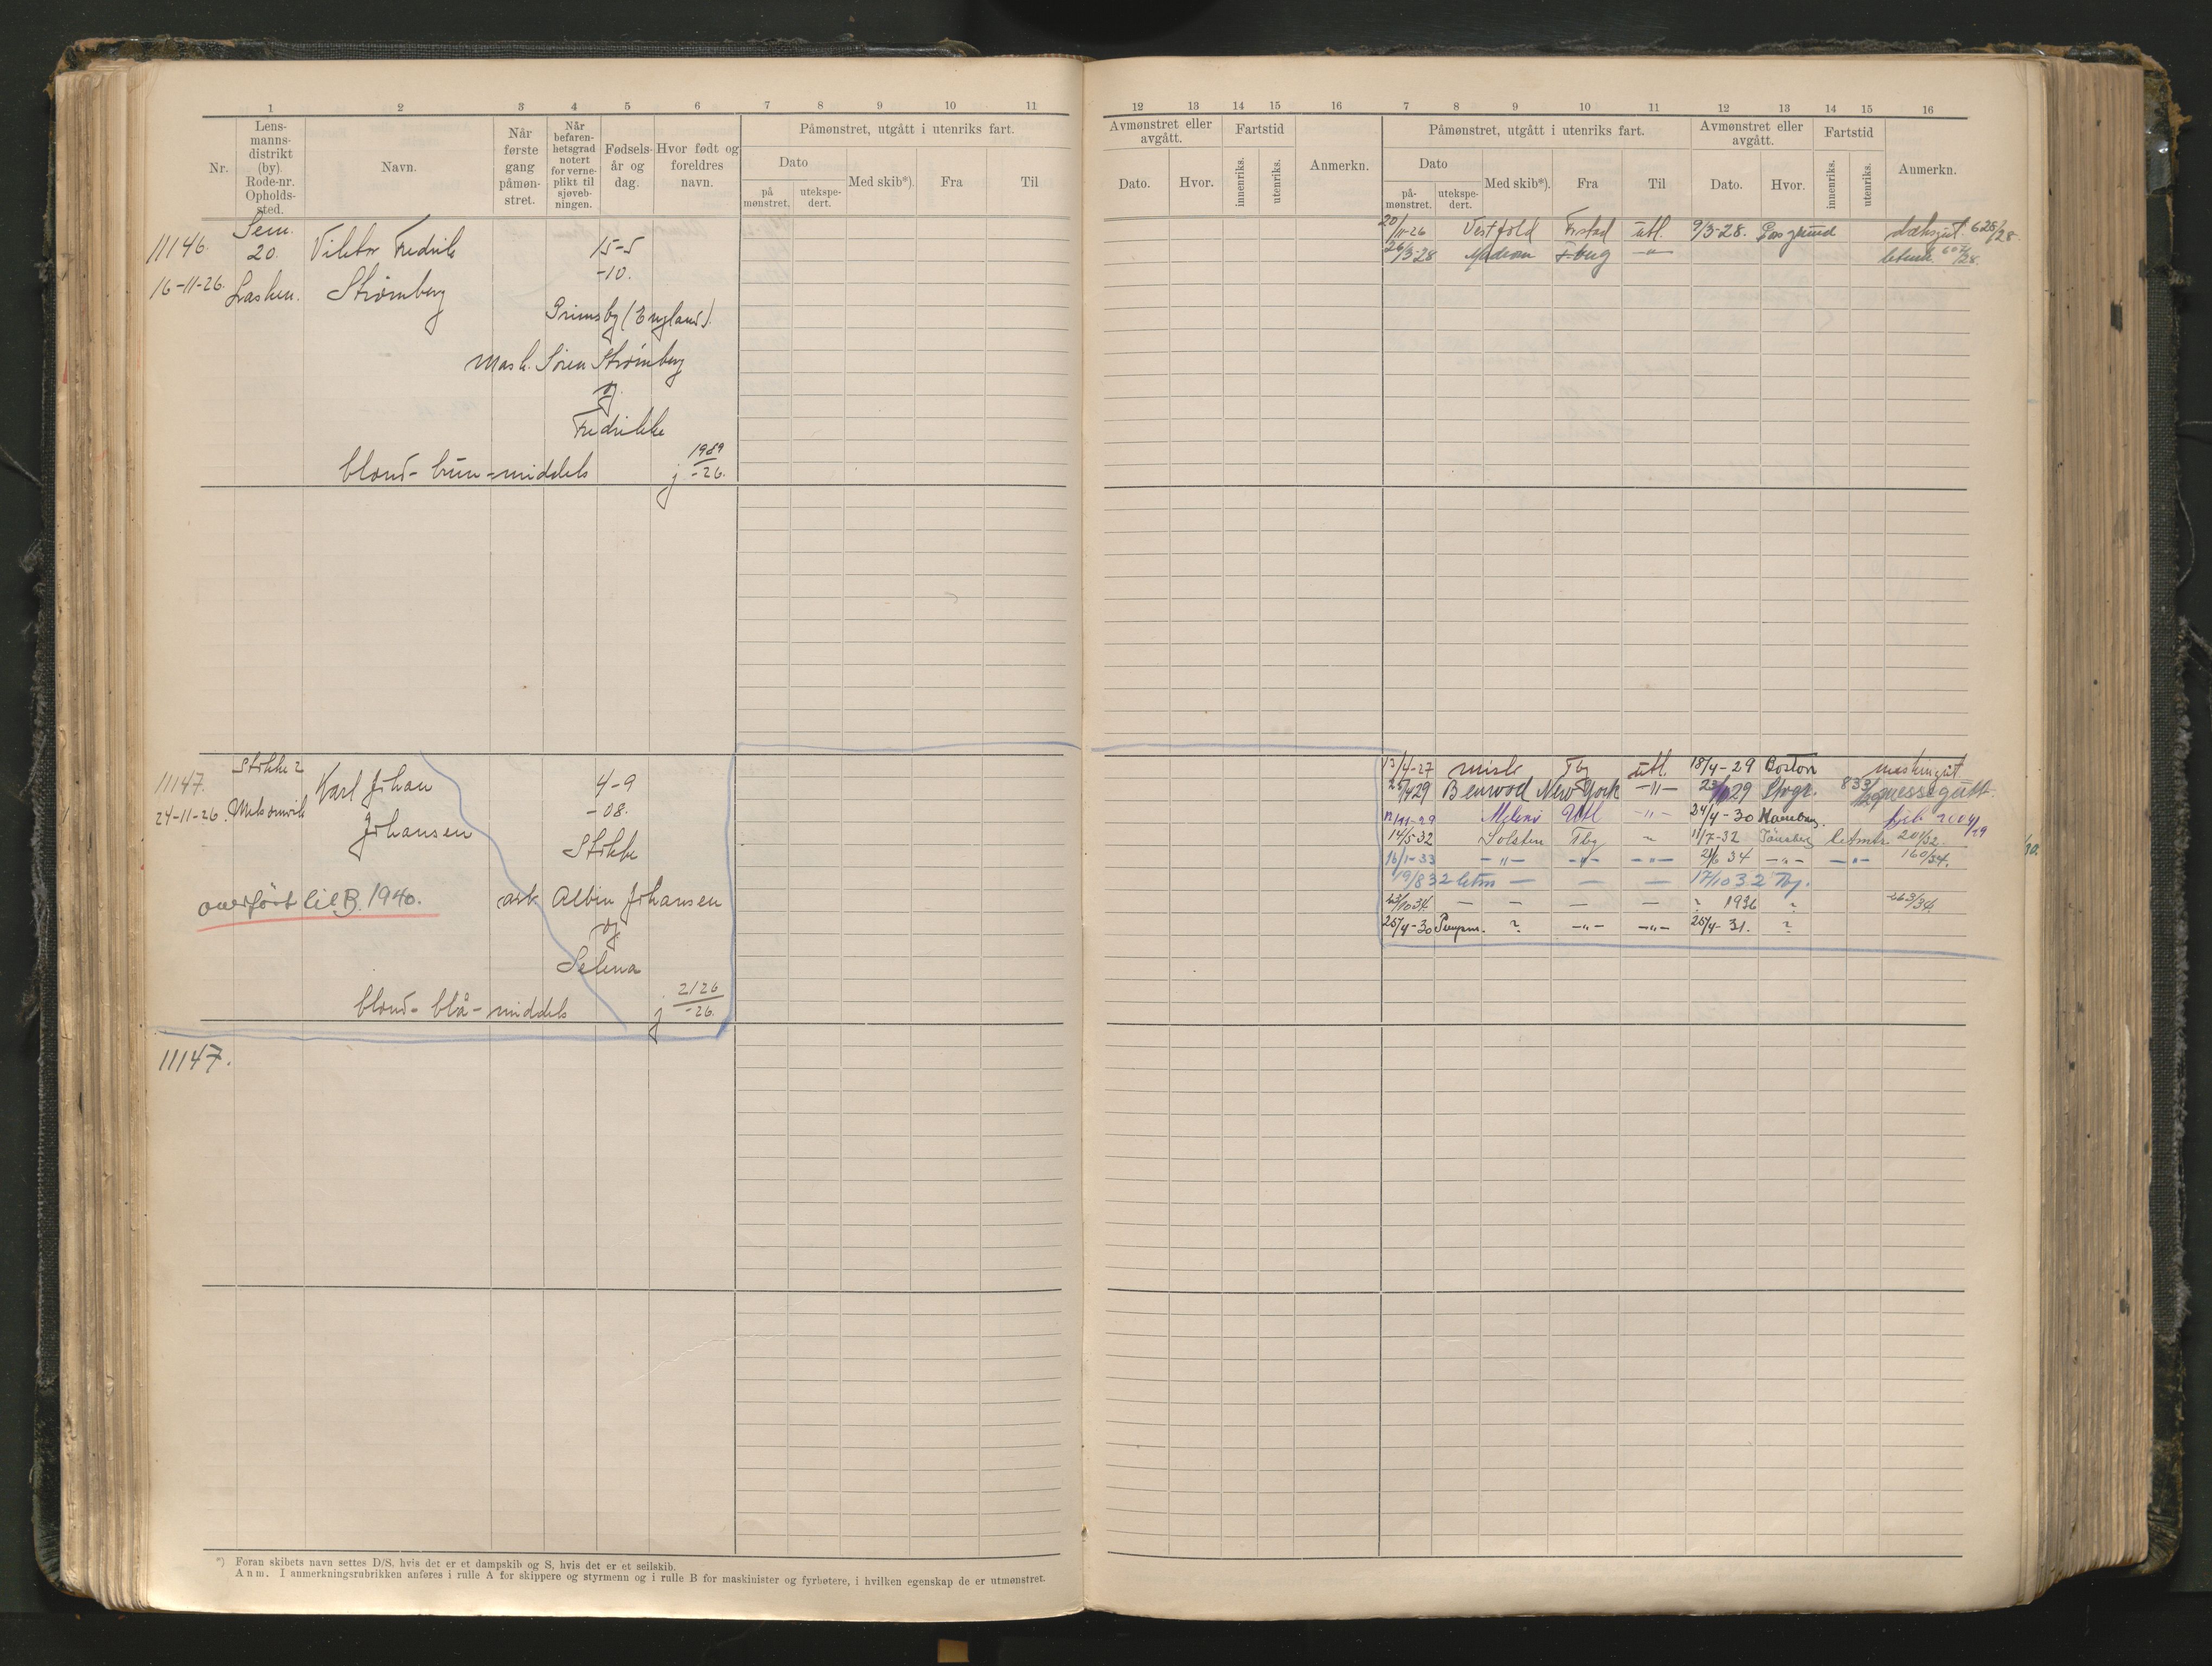 1 2 3 4 5 6 7 8 9 10 11
Nr.
Lens-
manns-
distrikt
(by).
Rode-nr.
Opholds-
sted.
Navn.
Når
første
gang
påmøn-
stret.
Når
befaren-
hetsgrad
notert
for verne-
plikt til
sjøveb-
ningen.
Fødsels-
år og
dag.
Hvor født og
foreldres
navn.
Påmønstret, utgått i utenriks fart.
Dato
på
mønstret.
utekspe-
dert.
Med skib*).
Fra
Til
11146.
16-11-26.
Sem.
20.
Viktor Fredrik
Strømberg
15-5
-10.
Grimsby (England).
Mask. Søren Strømberg
og
Fredrikke
blond - brun - middels
j 1989/-26.
11147.
24-11-26.
Stokke 2
Melsomvik
Karl Johan
Johansen
4-9
-08.
Stokke
overført til B. 1940.
arb. Albin Johansen
og
Selena
blond - blå - middels
j 2126/-26.
11147.
*) Foran skibets navn settes D/S, hvis det er et dampskib og S, hvis det er et seilskib.
Anm. I anmerkningsrubrikken anføres i rulle A for skippere og styrmenn og i rulle B for maskinister og fyrbøtere, i hvilken egenskap de er utmønstret.
12 13 14 15 16 7 8 9 10 11 12 13 14 15 16
Avmønstret eller
avgått.
Dato.
Hvor.
Fartstid
innenriks.
utenriks.
Anmerkn.
Påmønstret, utgått i utenriks fart.
Dato
på-
mønstret.
utekspe-
dert.
Med skib*).
Fra
Til
Avmønstret eller
avgått.
Dato.
Hvor.
Fartstid
innenriks.
utenriks.
Anmerkn.
20/11-26 Vestfold Frstad utl. 9/3-28. Porsgrund dæksgut. 625/28.
26/3-28 T-berg -"- letm.
13/4-27 Tbg utl. 18/4-29 Boston maskingut
25/4 29 Benwood New York -"- 29 messegutt.
12/11-29 Utl -"- 24/4-30 Hamburg.
14/5-32 Solsten Tbg 11/7-32 Tønsberg letmtr. 201/32.
16/1-33 -"- -"- -"- 21/6 34 -"- -"- 160/34.
19/8 32 letm — — — 17/10 32 Tbg.
23/10 34. — — — — ? 1936 ? 263/34.
25/4-30 Pumpm. ? -"- -"- 25/4-31. ?